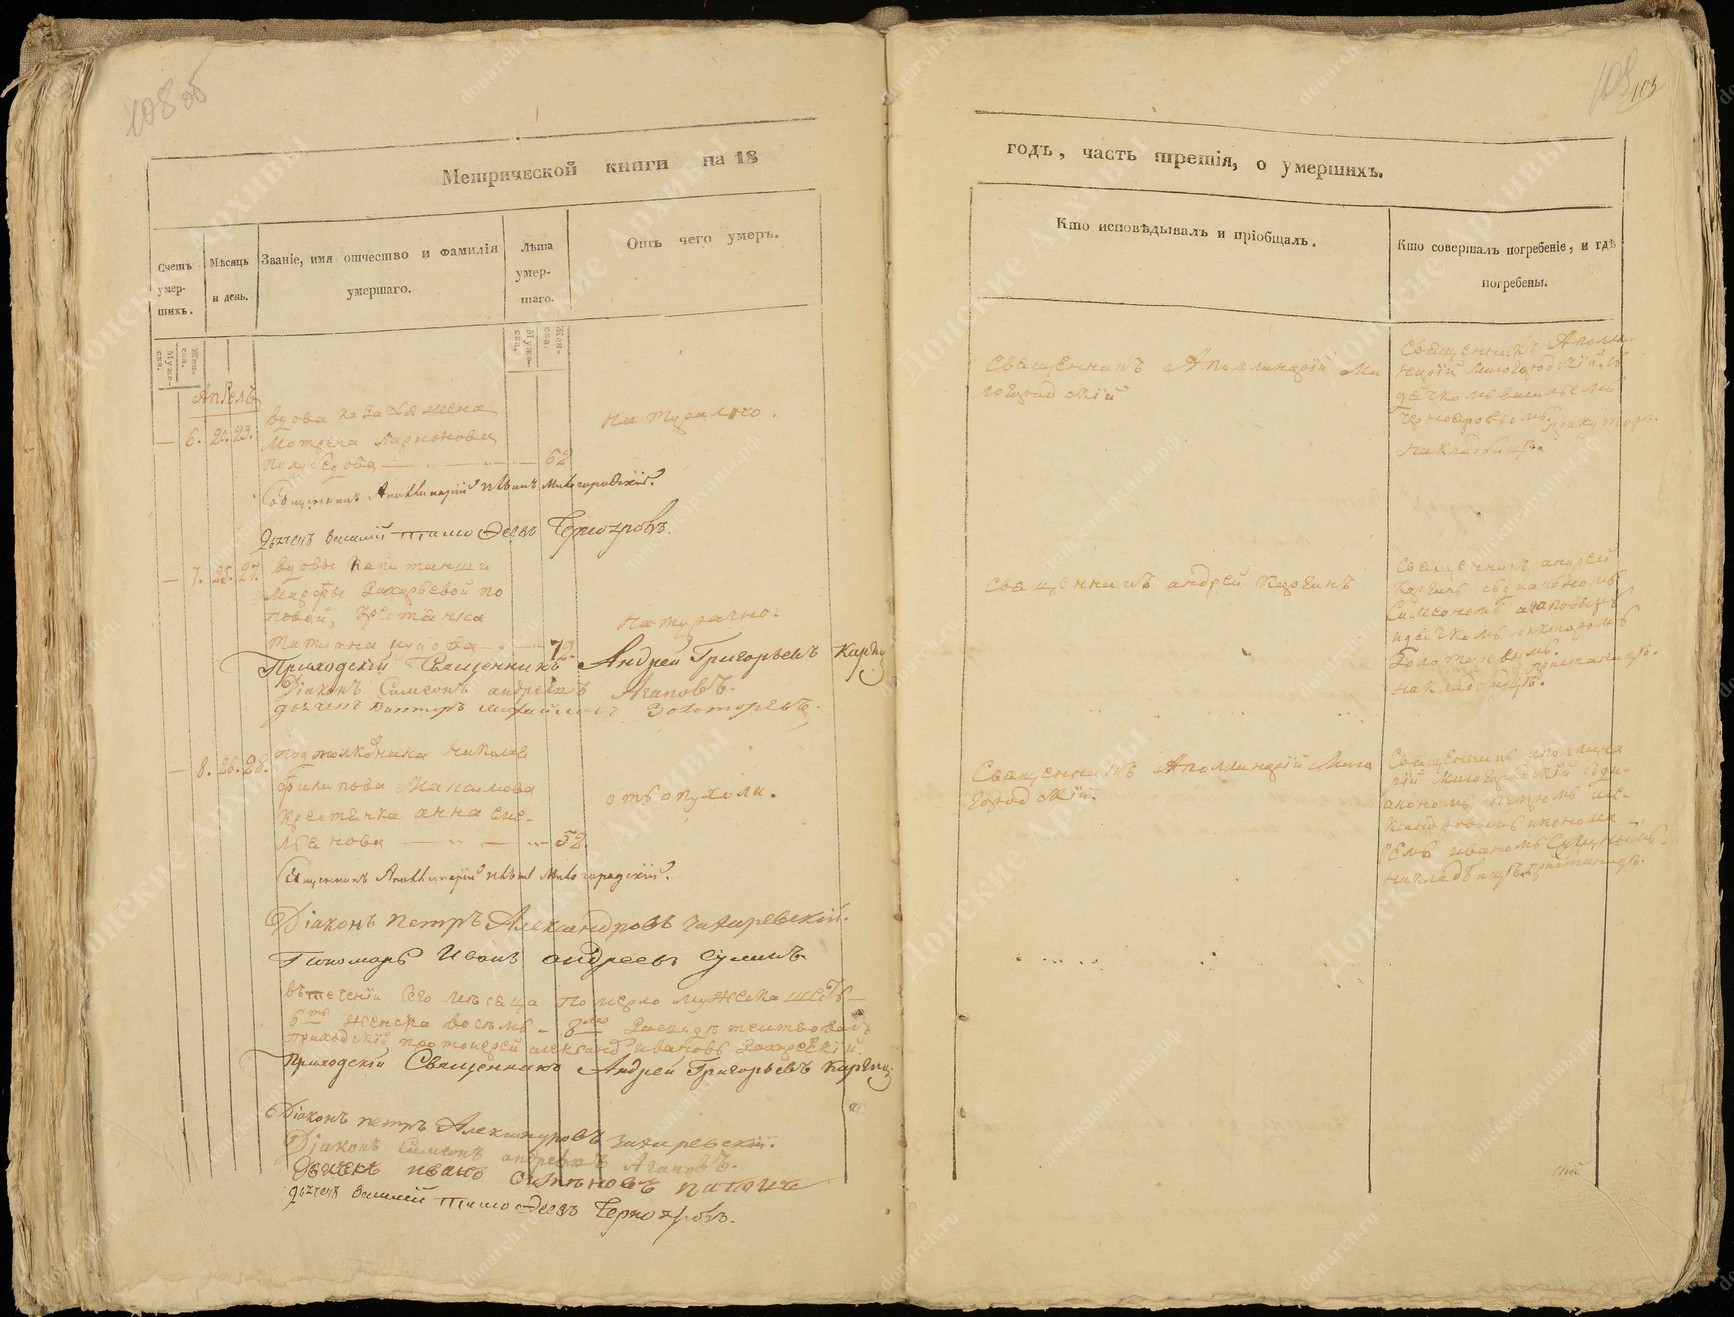 108 об
109
105
Метрической книги на 18
годъ, часть третія, о умершихъ.
Счетъ умер-шихъ.
Мѣсяцъ и день.
Званіе, имя отчество и фамилія умершаго.
Лѣта умер-шаго.
Отъ чего умеръ.
Кто исповѣдывалъ и пріобщалъ.
Кто совершалъ погребеніе, и гдѣ погребены.
Муже-ска.
Жен-ска.
Муже-ска.
Жен-ска.
Апрель
— 6. 20. 23.
вдова казачья жена
Мотрена Ларионова
62
натурално.
Священникъ Аполлинарій Ми
логородскій
Священникъ Аполи-
нарій Милогородскій съ
дьячкомъ василіемъ
Чернояровымъ
на кладбищѣ.
Священникъ Аполлинарій Милогородскій.
Дьячекъ Василий Тимофеевъ Чернояровъ.
— 7. 25. 27.
вдовы капитанши
Марфы Захарьевой по
повой, крестянка
татиана
72.
натурално.
священникъ андрей Каргинъ
священникъ андрей
Каргинъ съ діакономъ
Симеономъ агаповымъ
и дьячкомъ викторомъ
Золотаревымъ.
на кладбищѣ.
Приходскій Священникъ Андрей Григорьевъ Каргинъ
Діаконъ Симеонъ андреевъ Агаповъ.
дьячекъ Викторъ михайловъ Золотаревъ.
— 8. 26. 28.
подполковника николая
Филипова Максимова
крестянка анна еме-
льянова
52.
отъ опухоли.
Священникъ Аполлинарій Мило
городскій.
Священникъ аполлина
рій Милогородскій съ ді-
акономъ петромъ але-
ксандровымъ и понома
ремъ иваномъ Сулинымъ
на кладбищѣ
Священникъ Аполлинарій Милогородскій.
Діаконъ петръ Александровъ Захаревскій.
Пономарь Иванъ андреевъ сулинъ.
въ теченіи сего месяца померло мужеска шесть —
6ть женска восемь — 8 Засвидѣтелствовалъ
приходскій протоиерей александръ ивановъ Захаревскій.
Приходскій Священникъ Андрей Григорьевъ Каргинъ
Діаконъ петръ Александровъ Захаревскій.
Діаконъ Симеонъ андреевъ Агаповъ.
Дьячекъ иванъ
дьячекъ Василий Тимофеевъ Чернояровъ.